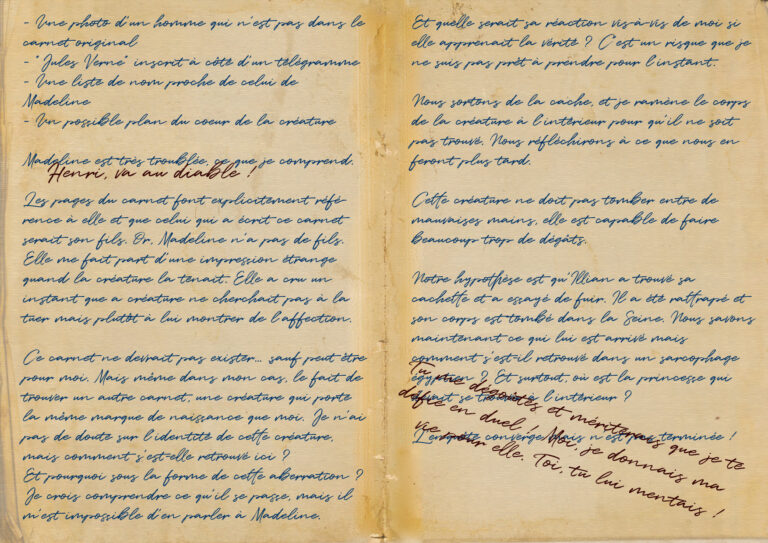 - Une photo d'un homme qui n'est pas dans le
carnet original
- "Jules Verne" inscrit à côté d'un télégramme
- Une liste de nom proche de celui de
Madeline
- Un possible plan du coeur de la créature
Madeline est très troublée, ce que je comprend.
Henri, va au diable !
Les pages du carnet font explicitement réfé-
rence à elle et que celui qui a écrit ce carnet
serait son fils. Or, Madeline n'a pas de fils.
Elle me fait part d'une impression étrange
quand la créature la tenait. Elle a cru un
instant que a créature ne cherchait pas à la
tuer mais plutôt à lui montrer de l'affection.
Ce carnet ne devrait pas exister... sauf peut être
pour moi. Mais même dans mon cas, le fait de
trouver un autre carnet, une créature qui porte
la même marque de naissance que moi. Je n'ai
pas de doute sur l'identité de cette créature,
mais comment s'est-elle retrouvé ici ?
Et pourquoi sous la forme de cette aberration ?
Je crois comprendre ce qu'il se passe, mais il
m'est impossible d'en parler à Madeline.
Et quelle serait sa réaction vis-à-vis de moi si
elle apprenait la vérité ? C'est un risque que je
ne suis pas prêt à prendre pour l'instant.
Nous sortons de la cache, et je ramène le corps
de la créature à l'intérieur pour qu'il ne soit
pas trouvé. Nous réfléchirons à ce que nous en
feront plus tard.
Cette créature ne doit pas tomber entre de
mauvaises mains, elle est capable de faire
beaucoup trop de dégâts.
Notre hypothèse est qu'Illian a trouvé sa
cachette et a essayé de fuir. Il a été rattrapé et
son corps est tombé dans la Seine. Nous savons
maintenant ce qui lui est arrivé mais
comment s'est-il retrouvé dans un sarcophage
égyptien ? Et surtout, où est la princesse qui
devait se trouver à l'intérieur ?
L'enquête converge. Mais n'est pas terminée !
Tu me dégoûtes et mériterais que je te
défie en duel ! Moi, je donnais ma
vie pour elle. Toi, tu lui mentais !